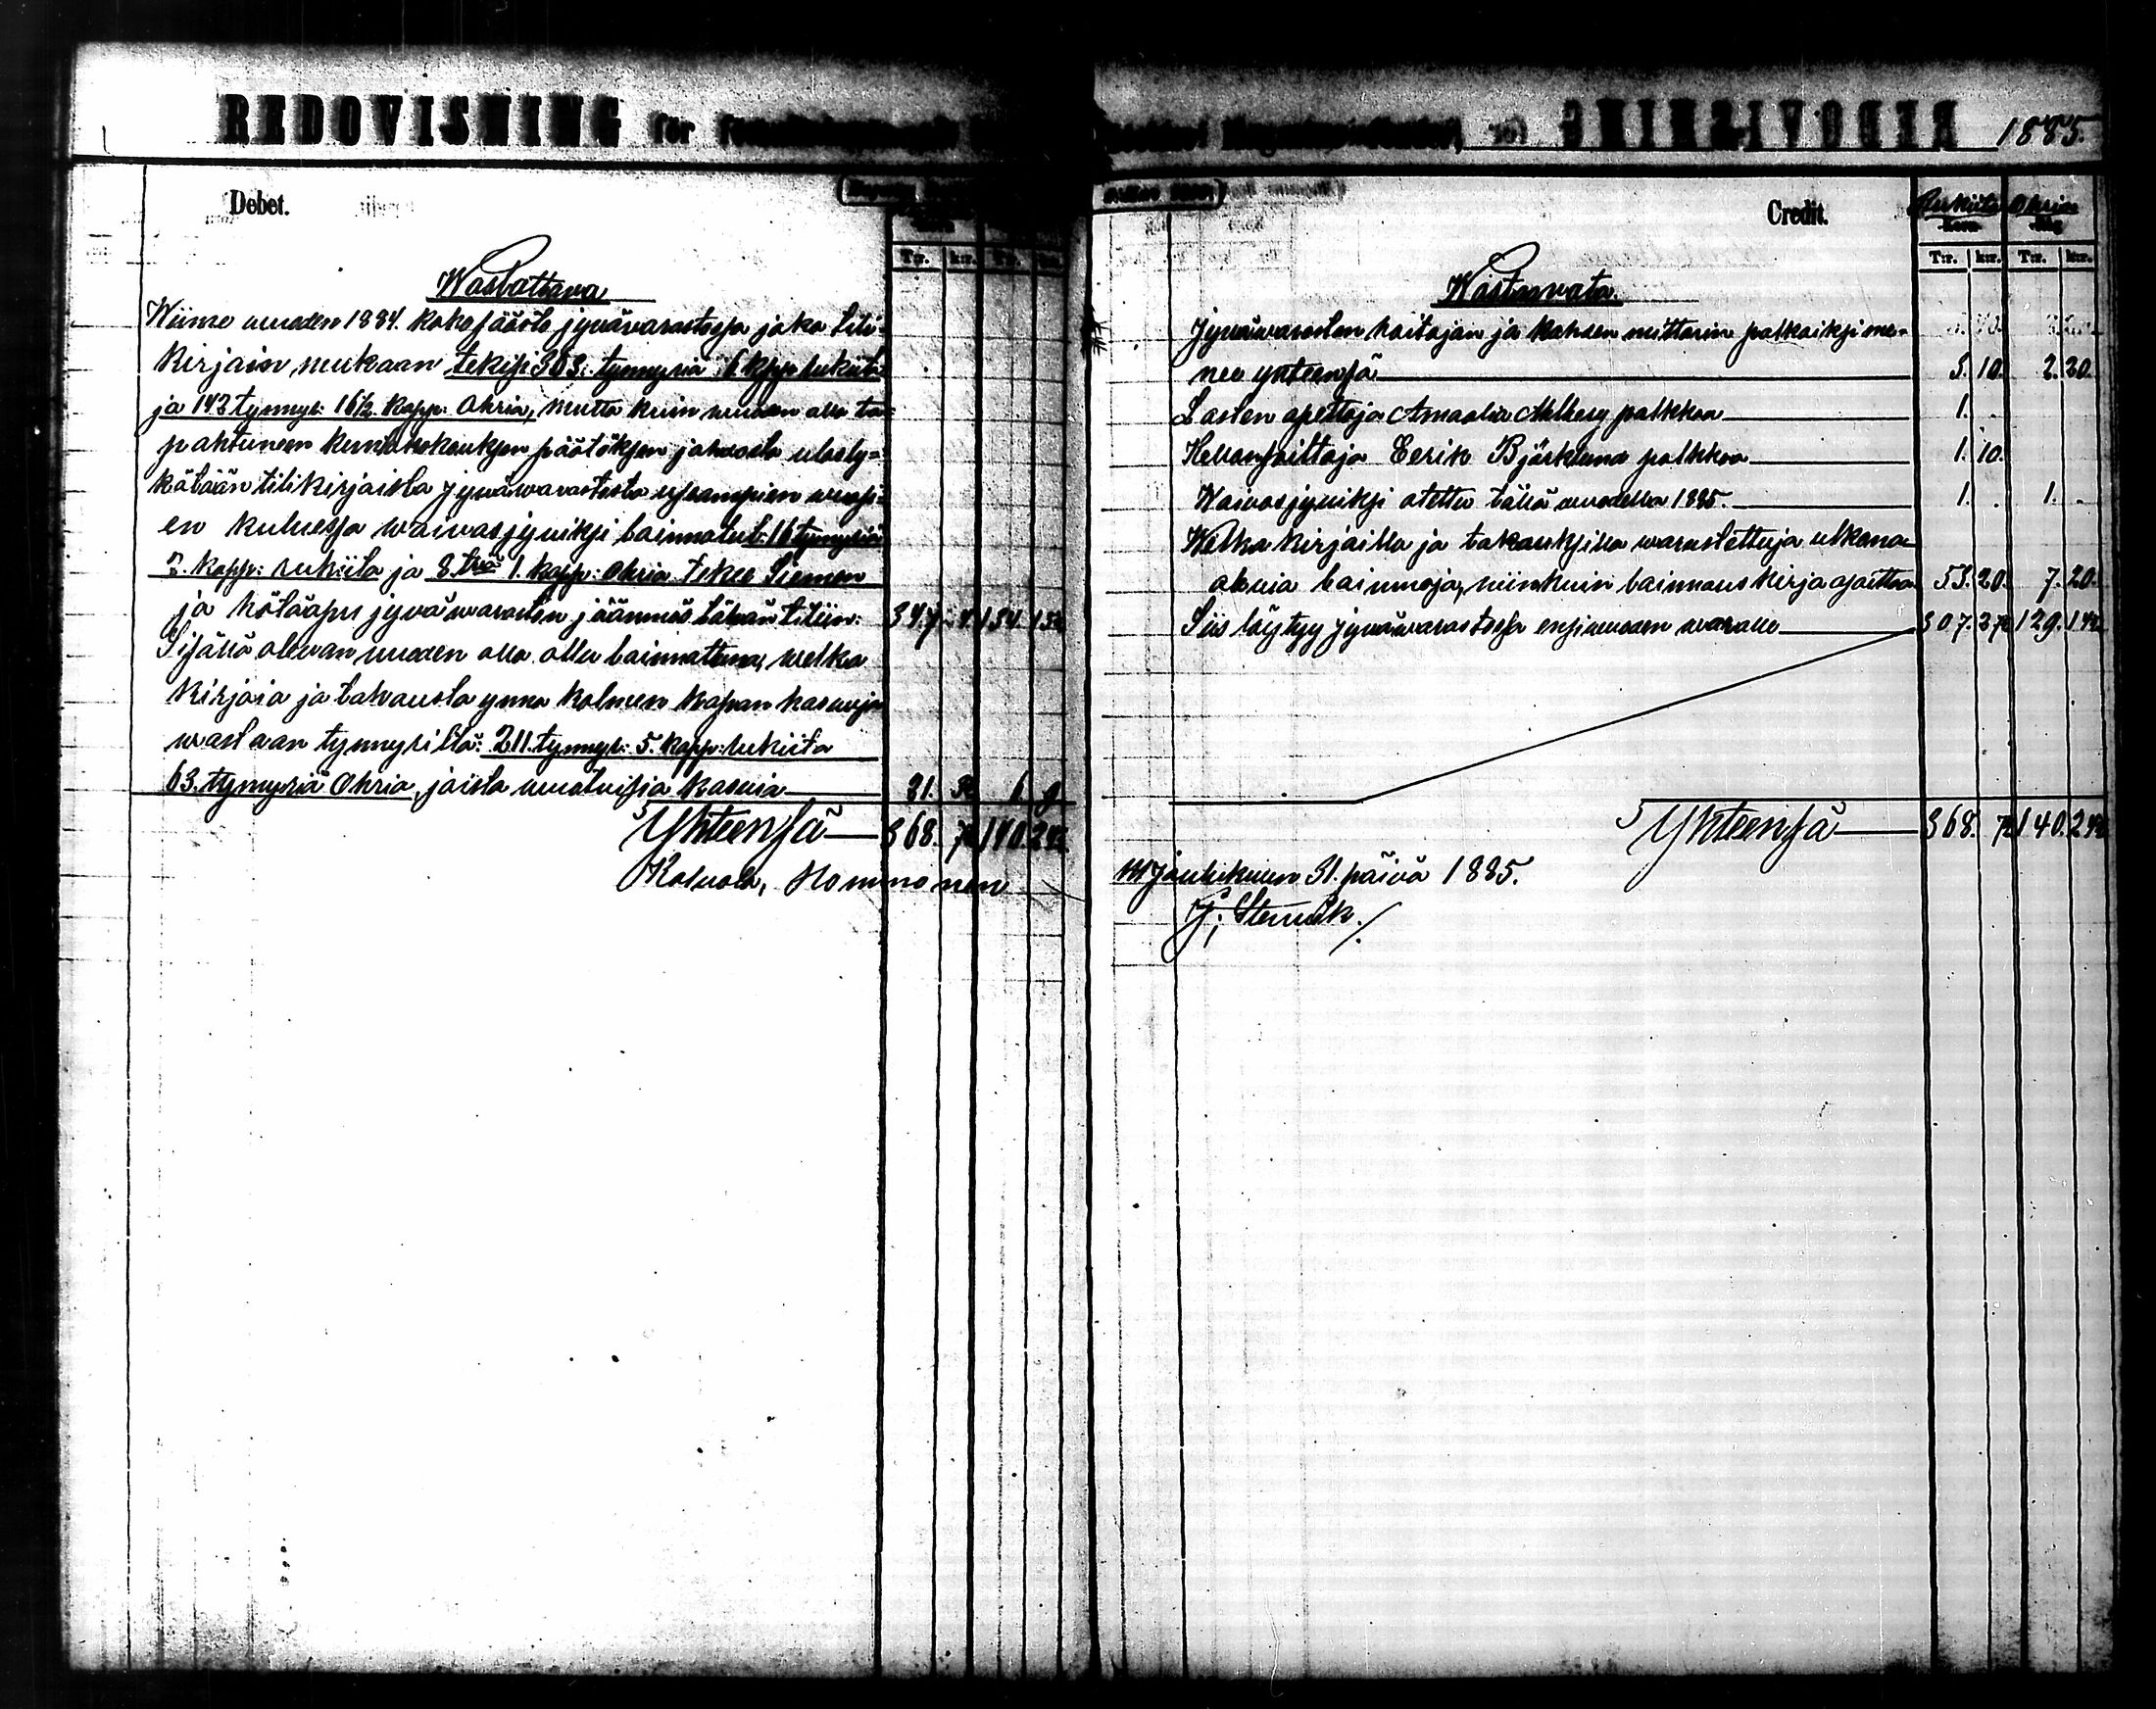 REDOVISNING för
1885.
Debet.
Tr. kr. Tr.
Wastattava
Wiime vuoden 1884. koko säästö jyvävarastosfa joka tili-
kirjain mukaan tekisi 363. tynnyriä 6 kapp rukiita
ja 142 tynnyr: 16½ kapp: Ohria, mutta kuin vuoden alla ta-
pahtuneen kuntakokouksen päätöksen johdosta ulosly-
kätään tilikirjaista jyvävarastosta useampien vuosi-
en kuluessa waivasjyviksi lainatut 16 tynnyriä
2. kapp: rukiita ja 8 trä 1. kapp: Ohria tekee Siemen
ja hätäapu jyvävaraston jäännös tähän tiliin: 347. 4. 134. 15½
Sisällä olevan vuoden alla ollu lainattuna, welka
kirjaia ja takausta ynnä kolmen kapan kasvuja
wastaan tynnyriltä: 211. tynnyr: 5. kapp: rukiita
63. tynnyriä Ohria, joista vuotuisia kasvia 21. 3½ 6. 9
Yhteensä 368. 7½ 140. 24½
Kalvola, Hommonen
Credit.
Rukiita Ohria
Trr. kr. Trr. kr.
Wastaavata.
Jyvävaraston hoitajan ja kahden mittarin palkaiksi me-
nee yhteensä 3. 10. 2. 20.
Lasten opettaja Amaalia Ahlberg palkkaa 1.
Hevansoittaja Eerik Björklund palkkaa 1. 10.
Waivasjyviksi otettu tällä vuodella 1885. 1. . 1.
Welka kirjailla ja takauksilla warustettuja ulkona
olevia lainoja, niinkuin lainaus kirja osoittaa 53. 20. 7. 20.
Siis löytyy jyvävarastosfa ensivuoden waralle 307. 27½ 129. 14½
Yhteensä 368. 7½ 140. 24½
Joulukuun 31. päivä 1885.